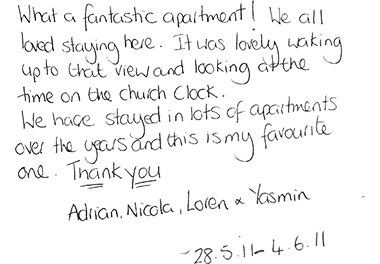 What a fantastic apartment! We all
loved staying here. It was lovely waking
up to that view and looking at the
time on the church clock.
We have stayed in lots of apartments
over the years and this is my favourite
one. Thank you
Adrian, Nicola, Loren & Yasmin
- 28.5.11 - 4.6.11